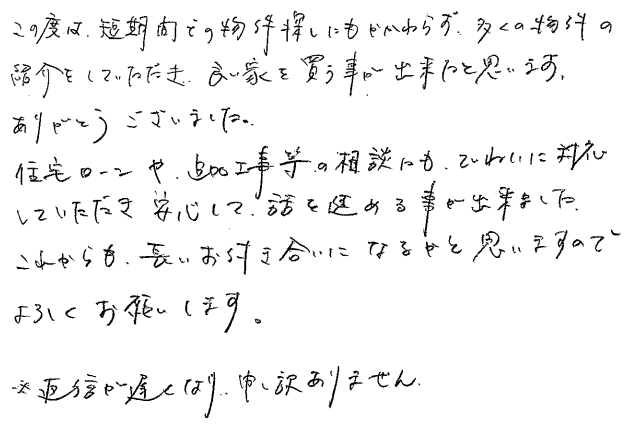 この度は、短期間での物件探しにもかかわらず、多くの物件の
紹介をしていただき、良い家を買う事が出来たと思います。
ありがとうございました。
住宅ローンや、追加工事等の相談にも、ていねいに対応
していただき安心して、話を進める事が出来ました。
これからも、長いお付き合いになるかと思いますので
よろしくお願いします。
※返信が遅くなり、申し訳ありません。